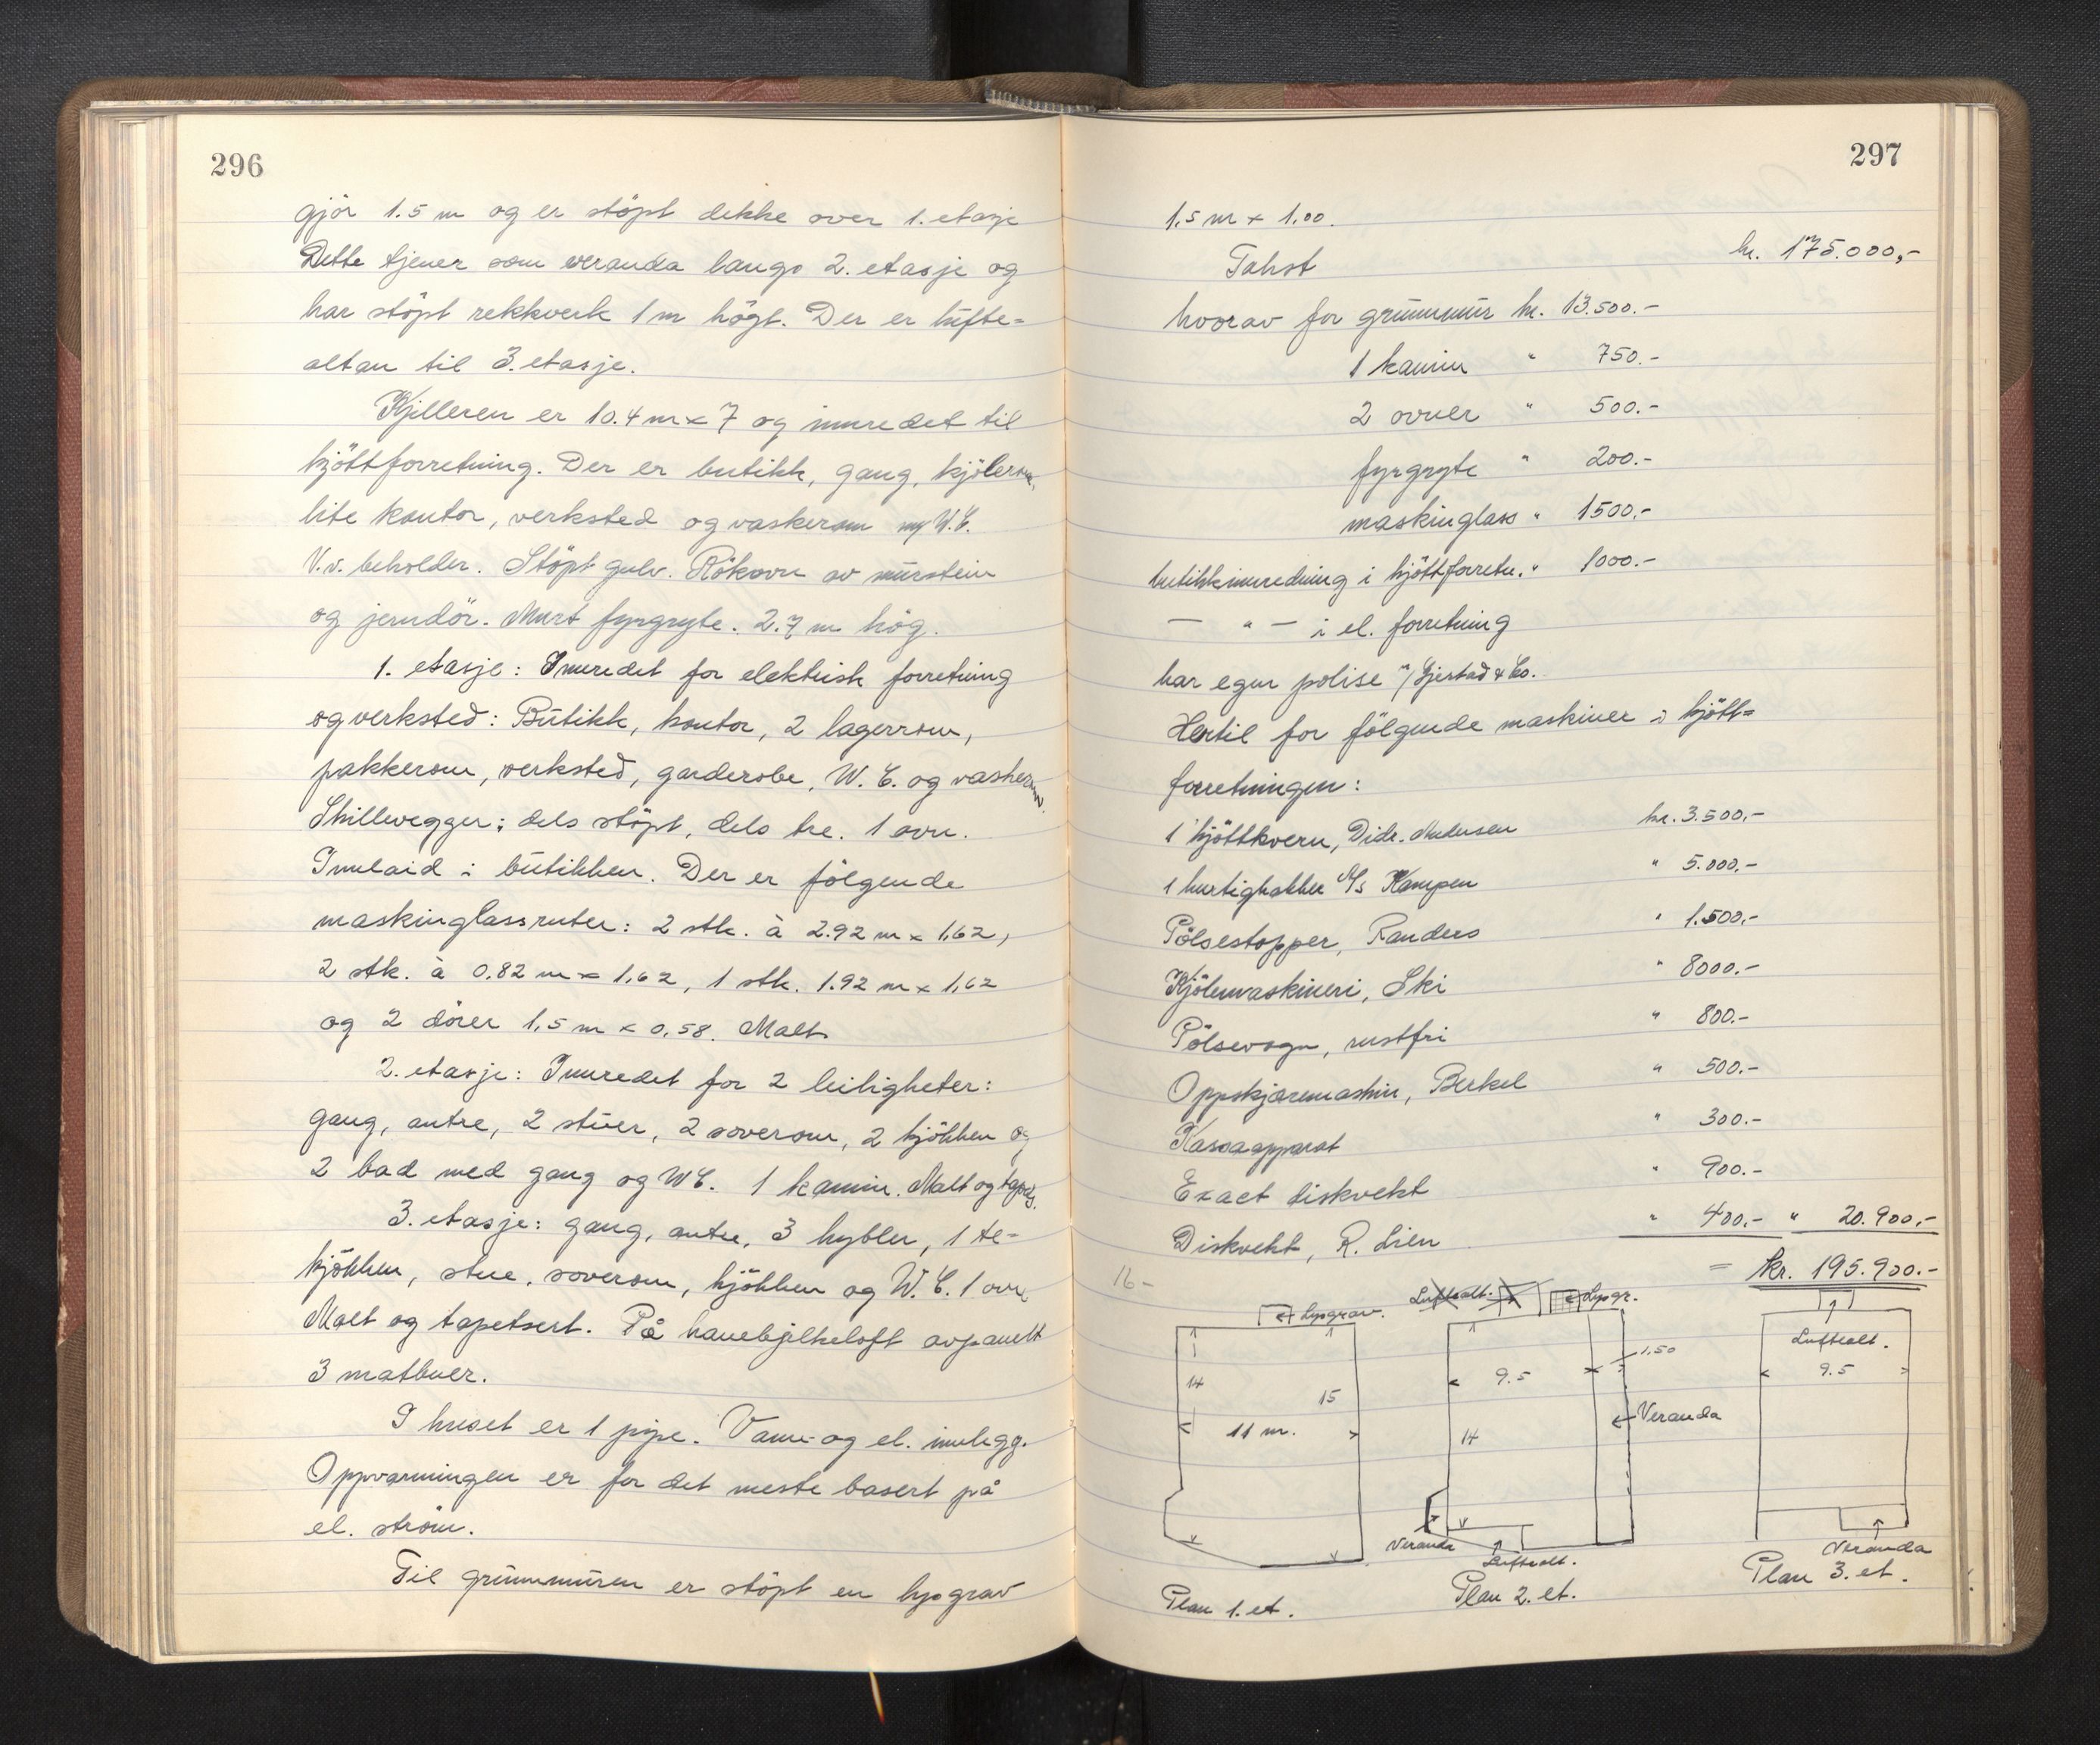 296
gjör 1.5 m og er stöpt dekke over 1. etasje
Dette tjener som veranda langs 2. etasje og
har stöpt rekkverk 1 m högt. Der er lufte-
altan til 3. etasje.
Kjelleren er 10.4 m x 7 og innredet til
kjöttforretning. Der er butikk, gang, kjölerom,
lite kontor, verksted og vaskerom m/ W.C.
V.v. beholder. Stöpt gulv. Rökovn av murstein
og jerndör. Murt fyrgryte. 2.7 m hög.
1. etasje: Innredet for elektrisk forretning
og verksted: Butikk, kontor, 2 lagerrom,
pakkerom, verksted, garderobe, W.C. og vaskerom
Skillevegger: dels stöpt, dels tre. 1 ovn.
Innlaid i butikken. Der er fölgende
maskinglassruter: 2 stk. à 2.92 m x 1,62,
2 stk. à 0.82 m x 1,62, 1 stk. 1.92 m x 1,62
og 2 dörer 1,5 m x 0,58. Malt.
2. etasje: Innredet for 2 leiligheter:
gang, antre, 2 stuer, 2 soverom, 2 kjökken og
2 bad med gang og WC. 1 kamin. Malt og tapets.
3. etasje: gang, antre, 3 hybler, 1 te-
kjökken, stue, soverom, kjökken og W.C. 1 ovn.
Malt og tapetsert. På hanebjelkeloft avpanelt
3 matbuer.
I huset er 1 pipe. Vann- og el. innlegg.
Oppvarmingen er for det meste basert på
el. ström.
Til grunnmuren er stöpt en lysgrav
297
1,5 m x 1,00.
Takst kr. 175.000,-
hvorav for grunnmur kr. 13.500.-
1 kamin " 750.-
2 ovner " 500.-
fyrgryte " 200.-
maskinglass " 1500.-
butikkinnredning i kjöttforretn. " 1000.-
— " — i el. forretning
har egen polise m/ Gjertsd & Co.
Hertil for fölgende maskiner i kjött-
forretningen:
1 kjöttkvern, Didr. Andersen kr. 3.500,-
1 hurtighakker A/s Kampen " 5.000,-
Pölsestopper, Randers " 1.500,-
Kjölemaskineri, Ski " 8000.-
Pölsevogn, rustfri " 800.-
Oppskjæremaskin, Berkel " 500.-
Kassaapparat " 300.-
Exact diskvekt " 900.-
Diskvekt, R. Lien " 400,- " 20.900,-
= kr. 195.900.-
16-
Lysgrav.
14
15
11 m.
Plan 1. et.
Luftealt.
Lysgr.
1,50
9.5
Veranda
14
Veranda
Luftealt.
Plan 2. et.
Luftealt.
9.5
Veranda
Plan 3. et.